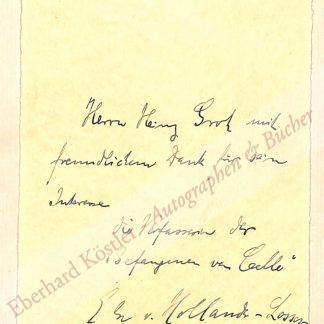 Herrn Heinz Grotz mit
freundlichem Dank für sein
Interesse
die Verfasserin der
"Gefangenen von Celle"
E. v. Hollander-Lossow
Eberhard Köstler Autographen & Bücher